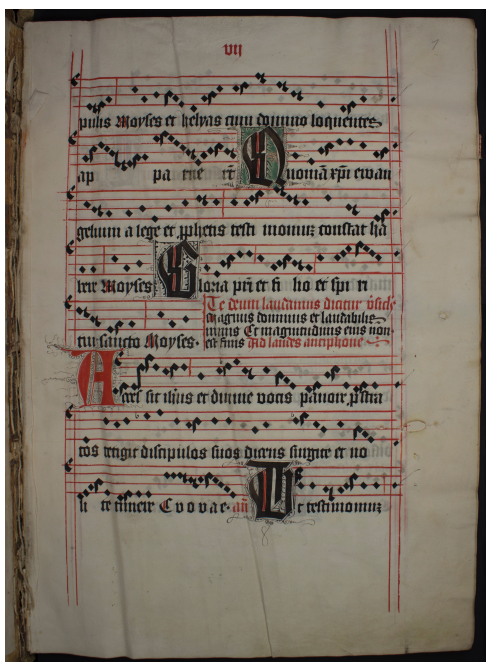 vij
pulis Moyses et helyas cum domino loquentes
ap pa rue rūt Quoniā xpi ewan
gelium a lege et pphetis testi monium constat ha
bere Moyses Gloria pri et fi lio et spi ri
Te deum laudamus dicitur
Magnus dominus et laudabilis
tui sancto Moyses. nimis Et magnitudinis eius non
est finis Ad laudes antiphone
A dei sit et divine vocis
tos tetigit discipulos suos dicens surgite et no
li te timere Evovae. añ Et testimonium